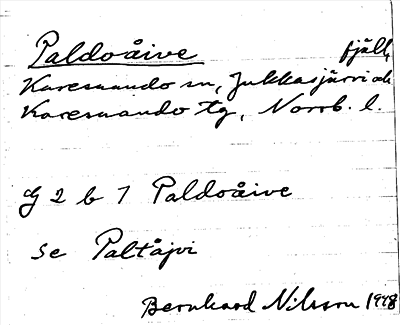 Paldoåive fjäll,
Karesuando sn, Jukkasjärvi och
Karesuando tg, Norrb. l.
G 2 b 7 Paldoåive
se Paltåjvi
Bernhard Nilsson 1948